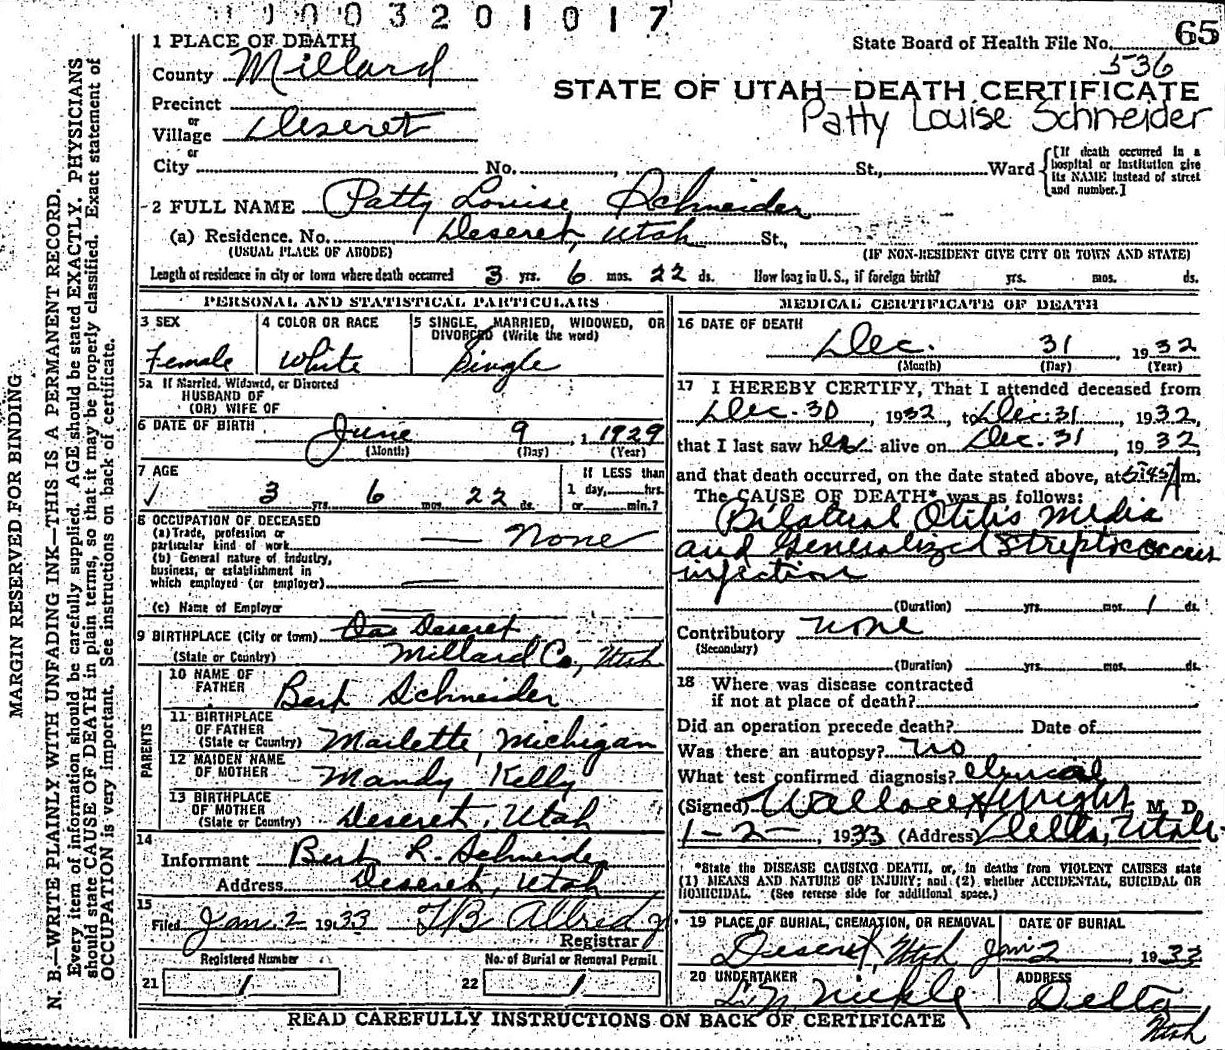 1003201017
65
State Board of Health File No.
536
STATE OF UTAH—DEATH CERTIFICATE
Patty Louise Schneider
1 PLACE OF DEATH
County Millard
Precinct
or
Village Deseret
or
City No. , St., Ward
[If death occurred in a hospital or institution give its NAME instead of street and number.]
2 FULL NAME Patty Louise Schneider
(a) Residence. No. Deseret, Utah St.,
(USUAL PLACE OF ABODE) (IF NON-RESIDENT GIVE CITY OR TOWN AND STATE)
Length of residence in city or town where death occurred 3 yrs. 6 mos. 22 ds. How long in U. S., if foreign birth? yrs. mos. ds.
PERSONAL AND STATISTICAL PARTICULARS
3 SEX
Female
4 COLOR OR RACE
White
5 SINGLE, MARRIED, WIDOWED, OR
DIVORCED (Write the word)
Single
5a If Married, Widowed, or Divorced
HUSBAND OF
(OR) WIFE OF
6 DATE OF BIRTH June 9, 1929
(Month) (Day) (Year)
7 AGE
3 yrs. 6 mos. 22 ds.
If LESS than
1 day, hrs.
or min.?
8 OCCUPATION OF DECEASED
(a) Trade, profession or
particular kind of work — None
(b) General nature of industry,
business, or establishment in
which employed (or employer)
(c) Name of Employer
9 BIRTHPLACE (City or town) Deseret
(State or Country) Millard Co, Utah
PARENTS
10 NAME OF
FATHER Bert Schneider
11 BIRTHPLACE
OF FATHER
(State or Country) Marlette, Michigan
12 MAIDEN NAME
OF MOTHER Mandy Kelly
13 BIRTHPLACE
OF MOTHER
(State or Country) Deseret, Utah
14
Informant Bert R. Schneider
Address Deseret, Utah
15
Filed Jan. 2 1933 T B Allred
Registrar
Registered Number
21 1
No. of Burial or Removal Permit
22 1
MEDICAL CERTIFICATE OF DEATH
16 DATE OF DEATH
Dec. 31, 1932
(Month) (Day) (Year)
17 I HEREBY CERTIFY, That I attended deceased from
Dec. 30, 1932, to Dec. 31, 1932,
that I last saw her alive on Dec. 31, 1932,
and that death occurred, on the date stated above, at 5:45 A m.
The CAUSE OF DEATH* was as follows:
Bilateral Otitis Media
and Generalized Streptococcus
infection
(Duration) yrs. mos. 1 ds.
Contributory none
(Secondary)
(Duration) yrs. mos. ds.
18 Where was disease contracted
if not at place of death?
Did an operation precede death? Date of
Was there an autopsy? no
What test confirmed diagnosis? clinical
(Signed) Wallace H Wright, M. D.
1-2-, 1933 (Address) Delta, Utah.
*State the DISEASE CAUSING DEATH, or, in deaths from VIOLENT CAUSES state
(1) MEANS AND NATURE OF INJURY; and (2) whether ACCIDENTAL, SUICIDAL OR
HOMICIDAL. (See reverse side for additional space.)
19 PLACE OF BURIAL, CREMATION, OR REMOVAL
Deseret, Utah
DATE OF BURIAL
Jan 2 1933
20 UNDERTAKER
Nickle
ADDRESS
Delta
Utah
READ CAREFULLY INSTRUCTIONS ON BACK OF CERTIFICATE
MARGIN RESERVED FOR BINDING
N. B.—WRITE PLAINLY WITH UNFADING INK—THIS IS A PERMANENT RECORD.
Every item of information should be carefully supplied. AGE should be stated EXACTLY. PHYSICIANS
should state CAUSE OF DEATH in plain terms, so that it may be properly classified. Exact statement of
OCCUPATION is very important. See instructions on back of certificate.